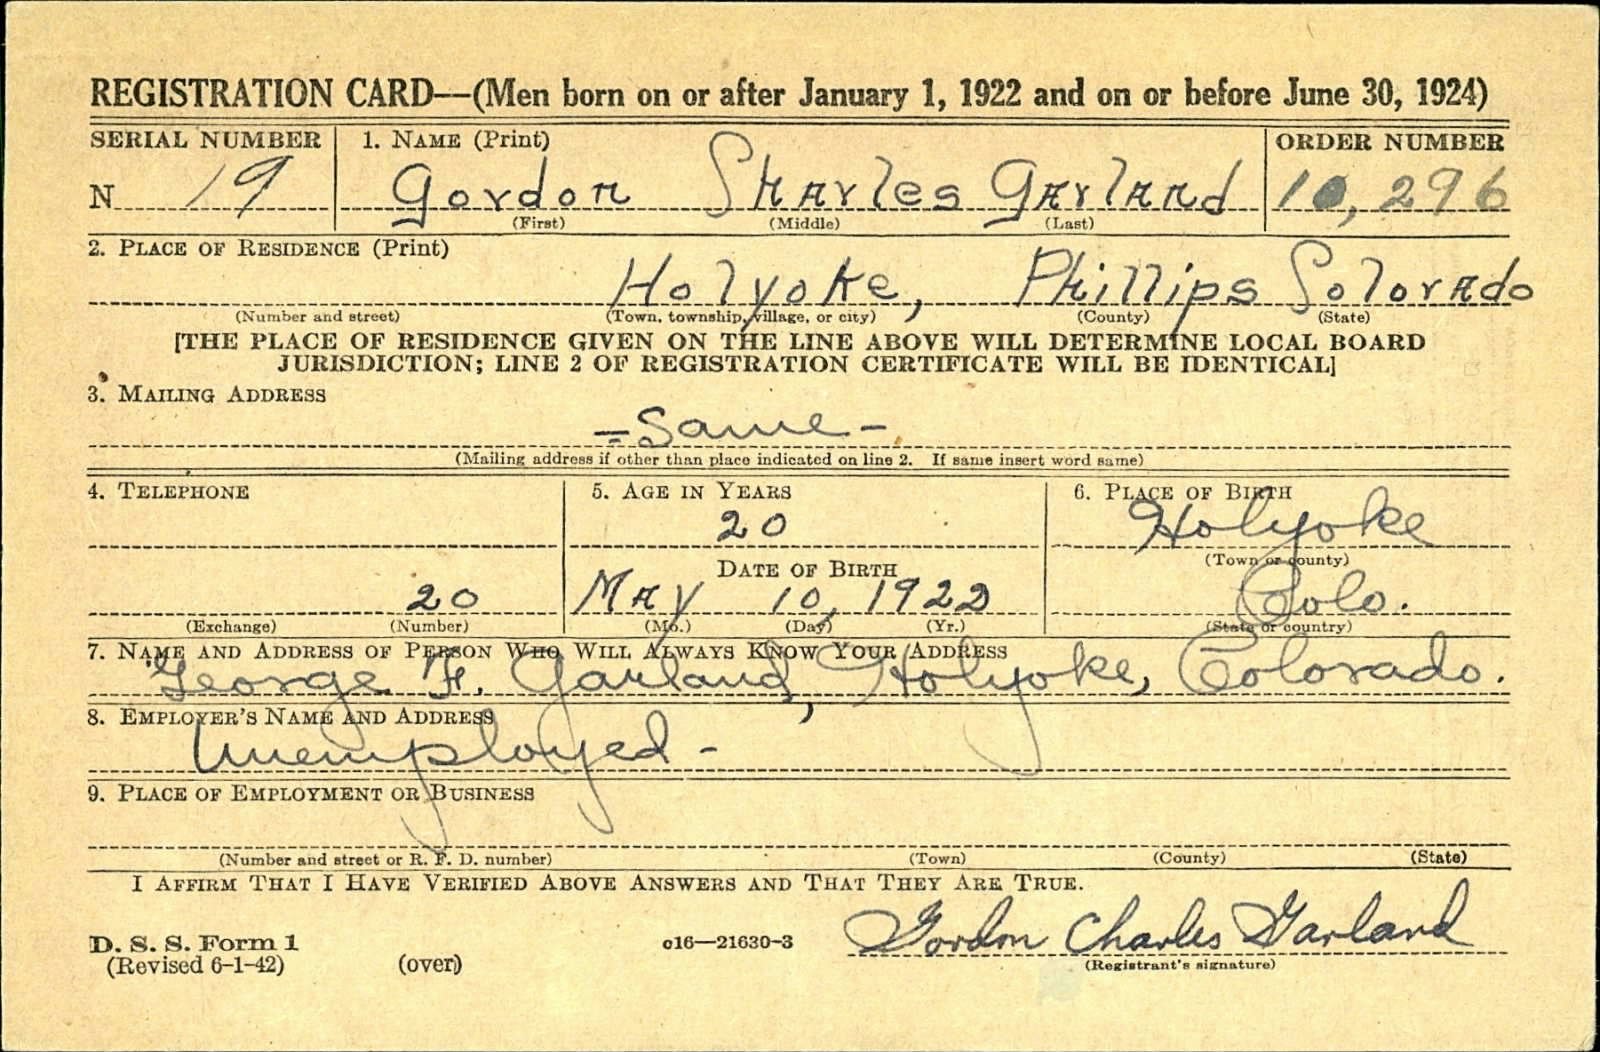 REGISTRATION CARD—(Men born on or after January 1, 1922 and on or before June 30, 1924)
SERIAL NUMBER 1. NAME (Print) ORDER NUMBER
N 19 Gordon Charles Garland 10,296
(First) (Middle) (Last)
2. PLACE OF RESIDENCE (Print)
Holyoke, Phillips Colorado
(Number and street) (Town, township, village, or city) (County) (State)
[THE PLACE OF RESIDENCE GIVEN ON THE LINE ABOVE WILL DETERMINE LOCAL BOARD
JURISDICTION; LINE 2 OF REGISTRATION CERTIFICATE WILL BE IDENTICAL]
3. MAILING ADDRESS
- Same -
(Mailing address if other than place indicated on line 2. If same insert word same)
4. TELEPHONE 5. AGE IN YEARS 6. PLACE OF BIRTH
20 Holyoke
(Town or county)
DATE OF BIRTH
20 May 10, 1922 Colo.
(Exchange) (Number) (Mo.) (Day) (Yr.) (State or country)
7. NAME AND ADDRESS OF PERSON WHO WILL ALWAYS KNOW YOUR ADDRESS
George F. Garland, Holyoke, Colorado.
8. EMPLOYER'S NAME AND ADDRESS
Unemployed -
9. PLACE OF EMPLOYMENT OR BUSINESS
(Number and street or R. F. D. number) (Town) (County) (State)
I AFFIRM THAT I HAVE VERIFIED ABOVE ANSWERS AND THAT THEY ARE TRUE.
Gordon Charles Garland
D. S. S. Form 1 c16—21630-3
(Revised 6-1-42) (over) (Registrant's signature)